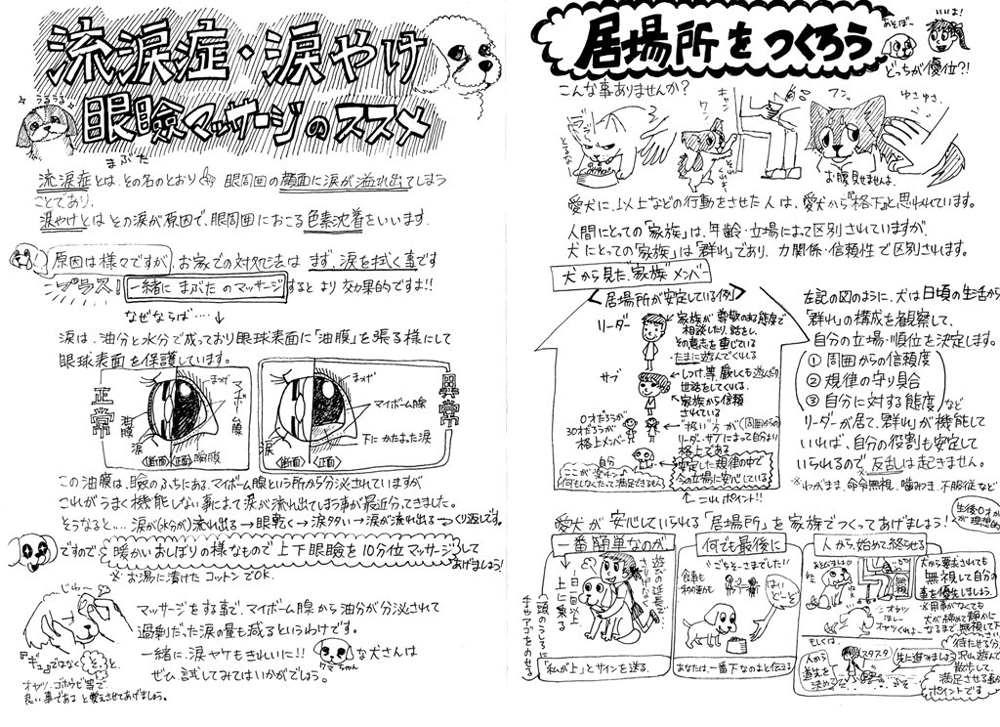 流涙症・涙やけ
眼瞼マッサージのススメ
うるうる
まぶた
流涙症とは、その名のとおり 眼周囲の顔面に涙が溢れ出てしまう
ことであり、
涙やけとは その涙が原因で、眼周囲におこる色素沈着をいいます。
原因は様々ですが、お家での対処法は まず、涙を拭く事です
プラス! 一緒に まぶた の マッサージすると より 効果的ですよ!!
なぜならば・・・・
涙は、油分と水分で成っており眼球表面に「油膜」を張る様にして
眼球表面を保護しています。
正常
まつげ
マイボーム腺
油膜
涙
〈断面〉〈正面〉
異常
まつげ
マイボーム腺
下に かたまった涙
〈断面〉
〈正面〉
この油膜は、瞼のふちにある、マイボーム腺という所から分泌されていますが
これがうまく機能しない事によって涙が流れ出てしまう事が最近分かってきました。
そうなると… 涙が(水分が)流れ出る→眼乾く→涙タタい→涙が流れ出る→くり返しです。
ですので、暖かいおしぼりの様なもので上下眼瞼を10分位マッサージしてあげましょう!
※お湯に漬けた コットンでOK.
じゅ〜
マッサージをする事で、マイボーム腺から油分が分泌されて
過剰だった涙の量も減るというわけです。
一緒に、涙ヤケもきれいに!! な犬さんは
クマちゃん
ぜひ、試してみてはいかがでしょう。
『ギュ』ではなく『そっ』と、
オヤツ、ゴホウビ等で
良い事であると覚えさせてあげましょう。
居場所をつくろう
あそぼー
どっちが優位?!
こんな事ありませんか?
キャン
フン。
ゆさゆさ。
お腹見せませんよ。
愛犬に、以上などの行動をさせた人は、愛犬から『格下』と思われています。
人間にとっての「家族」は、年齢・立場によって区別されていますが、
犬にとっての「家族」は「群れ」であり、力関係・信頼性で区別されます。
犬から見た、家族メンバー
〈居場所が安定している例〉
リーダー
家族が尊敬のある態度で
相談したり、話をし、
その意志を重じている
・たまに遊んでくれる
サブ
しつけ等、厳しくも遊んだり
世話をしてくれる。
家族から信頼
されている
0才だろうが
30才だろうが
格上メンバー
リーダー、サブによって自分より
格上である
自分
安定した規律の中で
今の立場に安心している
ここが楽チン♪
何もしなくたって満足できるもん
これポイント!!
左記の図のように、犬は日頃の生活から
「群れ」の構成を観察して、
自分の立場・順位を決定します。
① 周囲からの信頼度
② 規律の守り具合
③ 自分に対する態度 など
リーダーが居て、「群れ」が機能して
いれば、自分の役割も安定して
いられるので 反乱は起きません。
※わがまま、命令無視、噛みつき、不服従など
愛犬が安心していられる「居場所」を家族でつくってあげましょう!
一番簡単なのが
遊びの延長で
一日一回以上
上に乗る
頭のうしろに
チャアゴをのせる
「私が上」とサインを送る.
何でも最後に
ごちそーさまでした!!
食事も
はい
どーぞ
あなたは一番下なのよと伝える
人から、始めて終らせる
犬から要求されても
無視して自分の
事を優先しましょう。
オヤツくれー
もしくは、
人から
スタスタ
先に進みましょう
待たせる分、
沢山遊んで
散歩して、
満足させる事が
ポイントです